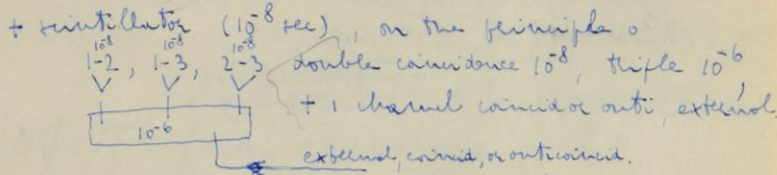 + scintillator (10⁻⁸ sec), on the principle o
10⁻⁸ 10⁻⁸ 10⁻⁸
1-2, 1-3, 2-3 double coincidence 10⁻⁸, triple 10⁻⁶,
+ 1 channel coincid or anti, external,
10⁻⁶
external, coincid, or anticoincid.